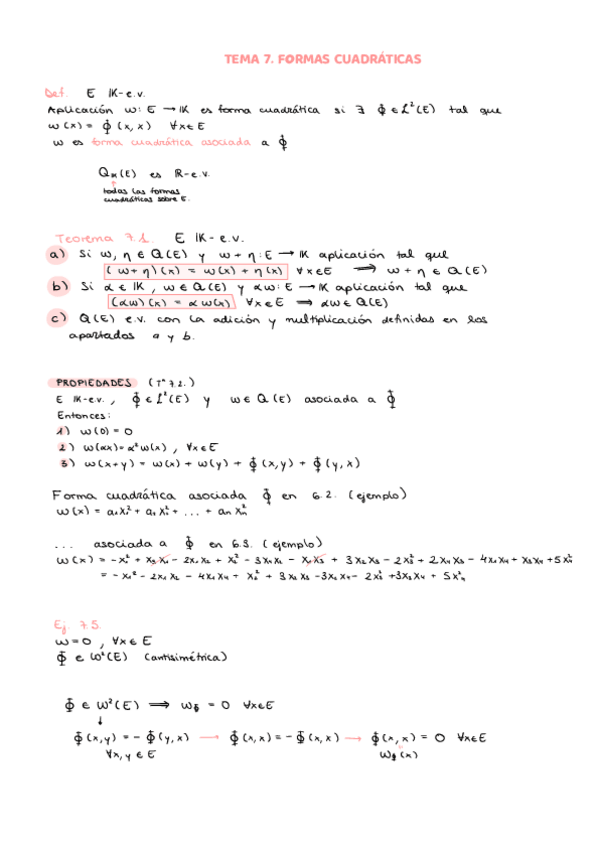 TEMA 7. FORMAS CUADRÁTICAS
Def. E IK-e.v.
Aplicación ω: E → IK es forma cuadrática si ∃ Φ ∈ L²(E) tal que
ω(x) = Φ(x,x) ∀x∈E
ω es forma cuadrática asociada a Φ
Q_IK(E) es IR-e.v.
todas las formas
cuadráticas sobre E.
Teorema 7.1. E IK-e.v.
a) Si ω, η ∈ Q(E) y ω+η: E → IK aplicación tal que
(ω+η)(x) = ω(x) + η(x) ∀x∈E ⟹ ω+η ∈ Q(E)
b) Si α ∈ IK, ω ∈ Q(E) y αω: E → IK aplicación tal que
(αω)(x) = αω(x) ∀x∈E ⟹ αω ∈ Q(E)
c) Q(E) e.v. con la adición y multiplicación definidas en los
apartados a y b.
PROPIEDADES (Tª 7.2.)
E IK-e.v., Φ ∈ L²(E) y ω ∈ Q(E) asociada a Φ
Entonces:
1) ω(0) = 0
2) ω(αx) = α²ω(x), ∀x∈E
3) ω(x+y) = ω(x) + ω(y) + Φ(x,y) + Φ(y,x)
Forma cuadrática asociada Φ en 6.2. (ejemplo)
ω(x) =
... asociada a Φ en 6.3. (ejemplo)
ω(x) =
Ej. 7.5.
ω = 0, ∀x∈E
Φ ∈ ω²(E) (antisimétrica)
Φ ∈ ω²(E) ⟹ ω_Φ = 0 ∀x∈E
↓
Φ(x,y) = - Φ(y,x) → Φ(x,x) = - Φ(x,x) → Φ(x,x) = 0 ∀x∈E
∀x,y ∈ E ω_Φ(x)